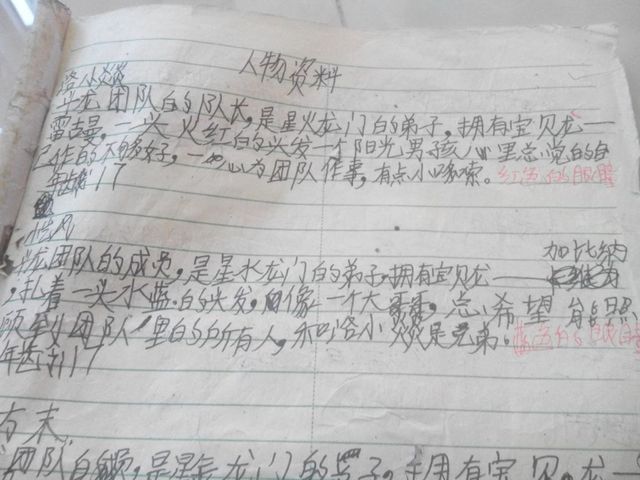 人物资料
洛小炎
斗龙团队的队长,是星火龙门的弟子,拥有宝贝龙一
雷古曼,一头火红的头发一个阳光男孩心里总觉的自
己作的不够好,一心为团队作事,有点小啰嗦。红色的眼睛
年龄17
龙团队的成员,是星水龙门的弟子,拥有宝贝龙——加比纳
,扎着一头水蓝的头发,像一个大哥哥,总希望能照
顾到团队里的所有人,和洛小炎是兄弟。蓝色的眼睛
年龄17
东方末
团队的成员,是星金龙门的弟子,拥有宝贝龙一